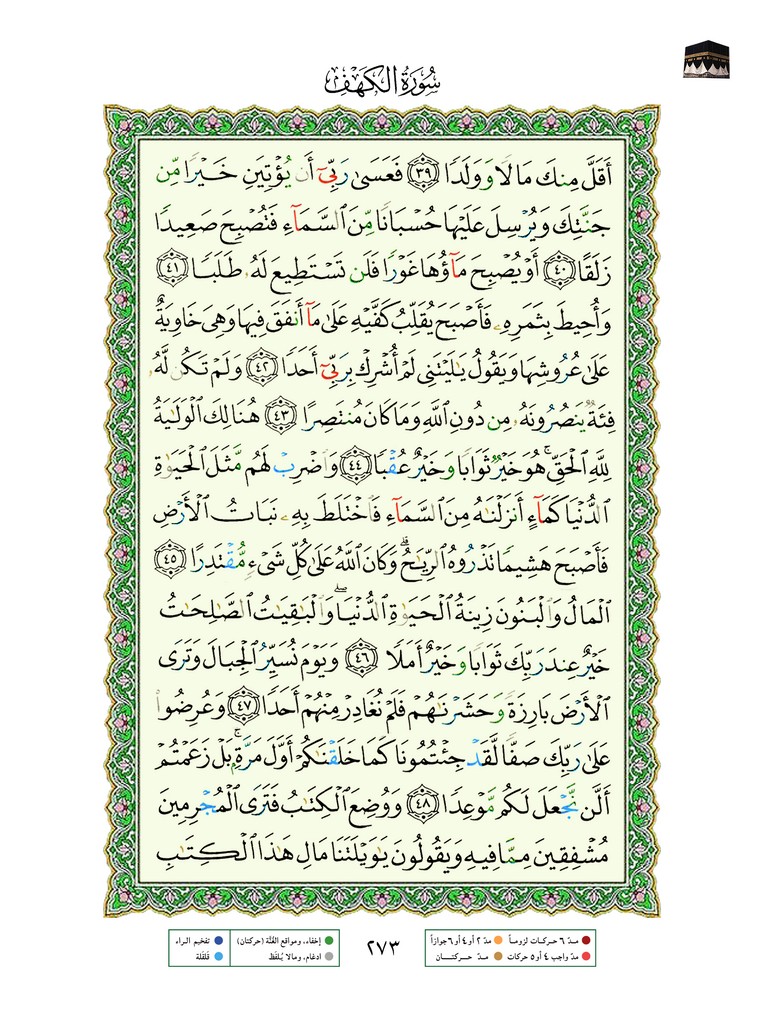 سُورَةُ الكَهْفِ
أَقَلَّ مِنكَ مَالًا وَوَلَدًا ۝٣٩ فَعَسَىٰ رَبِّىٓ أَن يُؤْتِيَنِ خَيْرًا مِّن
جَنَّتِكَ وَيُرْسِلَ عَلَيْهَا حُسْبَانًا مِّنَ ٱلسَّمَآءِ فَتُصْبِحَ صَعِيدًا
زَلَقًا ۝٤٠ أَوْ يُصْبِحَ مَآؤُهَا غَوْرًا فَلَن تَسْتَطِيعَ لَهُۥ طَلَبًا ۝٤١
وَأُحِيطَ بِثَمَرِهِۦ فَأَصْبَحَ يُقَلِّبُ كَفَّيْهِ عَلَىٰ مَآ أَنفَقَ فِيهَا وَهِىَ خَاوِيَةٌ
عَلَىٰ عُرُوشِهَا وَيَقُولُ يَٰلَيْتَنِى لَمْ أُشْرِكْ بِرَبِّىٓ أَحَدًا ۝٤٢ وَلَمْ تَكُن لَّهُۥ
فِئَةٌ يَنصُرُونَهُۥ مِن دُونِ ٱللَّهِ وَمَا كَانَ مُنتَصِرًا ۝٤٣ هُنَالِكَ ٱلْوَلَٰيَةُ
لِلَّهِ ٱلْحَقِّ ۚ هُوَ خَيْرٌ ثَوَابًا وَخَيْرٌ عُقْبًا ۝٤٤ وَٱضْرِبْ لَهُم مَّثَلَ ٱلْحَيَوٰةِ
ٱلدُّنْيَا كَمَآءٍ أَنزَلْنَٰهُ مِنَ ٱلسَّمَآءِ فَٱخْتَلَطَ بِهِۦ نَبَاتُ ٱلْأَرْضِ
فَأَصْبَحَ هَشِيمًا تَذْرُوهُ ٱلرِّيَٰحُ ۗ وَكَانَ ٱللَّهُ عَلَىٰ كُلِّ شَىْءٍ مُّقْتَدِرًا ۝٤٥
ٱلْمَالُ وَٱلْبَنُونَ زِينَةُ ٱلْحَيَوٰةِ ٱلدُّنْيَا ۖ وَٱلْبَٰقِيَٰتُ ٱلصَّٰلِحَٰتُ
خَيْرٌ عِندَ رَبِّكَ ثَوَابًا وَخَيْرٌ أَمَلًا ۝٤٦ وَيَوْمَ نُسَيِّرُ ٱلْجِبَالَ وَتَرَى
ٱلْأَرْضَ بَارِزَةً وَحَشَرْنَٰهُمْ فَلَمْ نُغَادِرْ مِنْهُمْ أَحَدًا ۝٤٧ وَعُرِضُوا۟
عَلَىٰ رَبِّكَ صَفًّا لَّقَدْ جِئْتُمُونَا كَمَا خَلَقْنَٰكُمْ أَوَّلَ مَرَّةٍۭ ۚ بَلْ زَعَمْتُمْ
أَلَّن نَّجْعَلَ لَكُم مَّوْعِدًا ۝٤٨ وَوُضِعَ ٱلْكِتَٰبُ فَتَرَى ٱلْمُجْرِمِينَ
مُشْفِقِينَ مِمَّا فِيهِ وَيَقُولُونَ يَٰوَيْلَتَنَا مَالِ هَٰذَا ٱلْكِتَٰبِ
مدّ ٦ حركات لزوماً مدّ ٢ أو ٤ أو ٦ جوازاً
مدّ واجب ٤ أو ٥ حركات مدّ حركتان
٢٧٣
إخفاء، ومواقع الغُنَّة (حركتان) تفخيم الراء
ادغام، ومالا يُلفَظ قلقلة